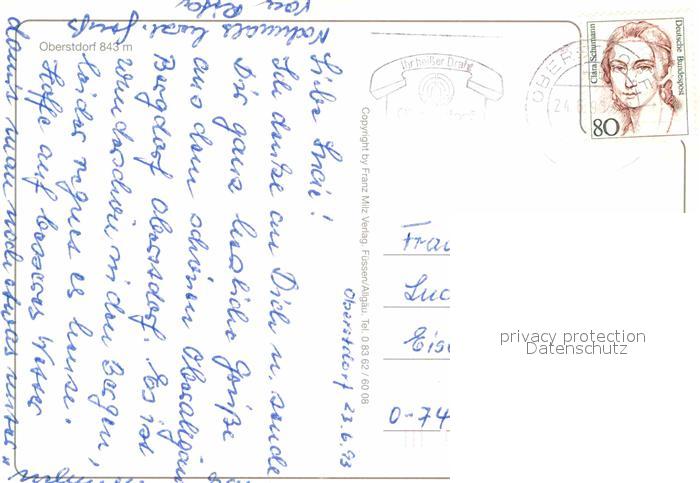 Oberstdorf 843 m
Oberstdorf 23.6.93
Liebe
Ich denke an Dich u. sende
Dir ganz herzliche Grüße
aus dem schönen Oberallgäu
Bergdorf Oberstdorf. Es ist
wunderschön in den Bergen,
leider regnet es heute.
Hoffe auf besseres Wetter
damit man noch etwas unter
Nochmals herzl. Grüß
von
Copyright by Franz Milz Verlag, Füssen/Allgäu, Tel. 0 83 62 / 60 08
Ihr heißer Draht
OBERS
24.6.93
Clara Schumann
Deutsche Bundespost
80
Frau
Luc
Eis
O-74
privacy protection
Datenschutz